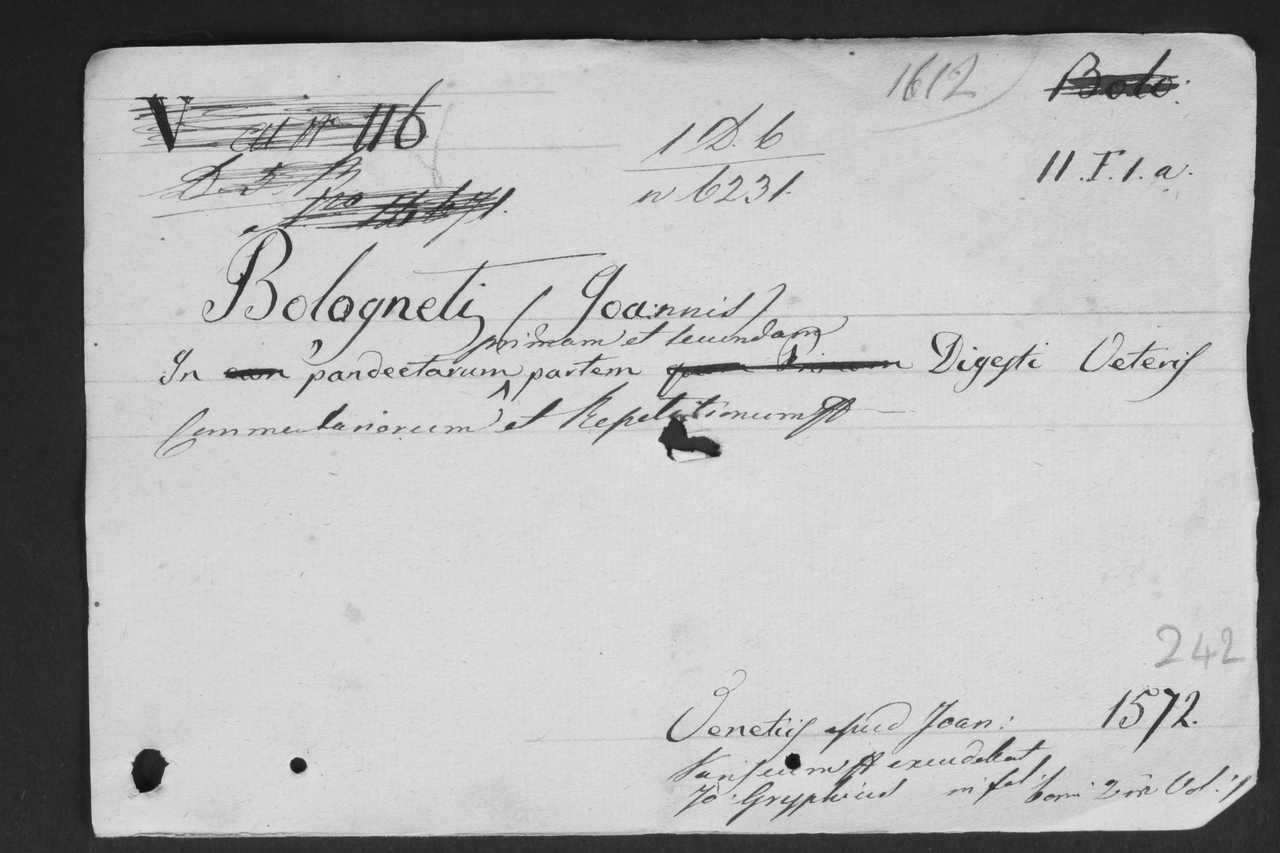 1612
Bolo.
V 116
1 D. b
n 6231.
11. F. 1. a.
Bologneti (Joannis)
primam et secundam
In pandectarum partem Digesti Veteris
Commentariorum et Repetitionum
242
Venetiis apud Joan: 1572.
excudebat
Jo: Gryphius in fol: tomi 2 in Vol: 1